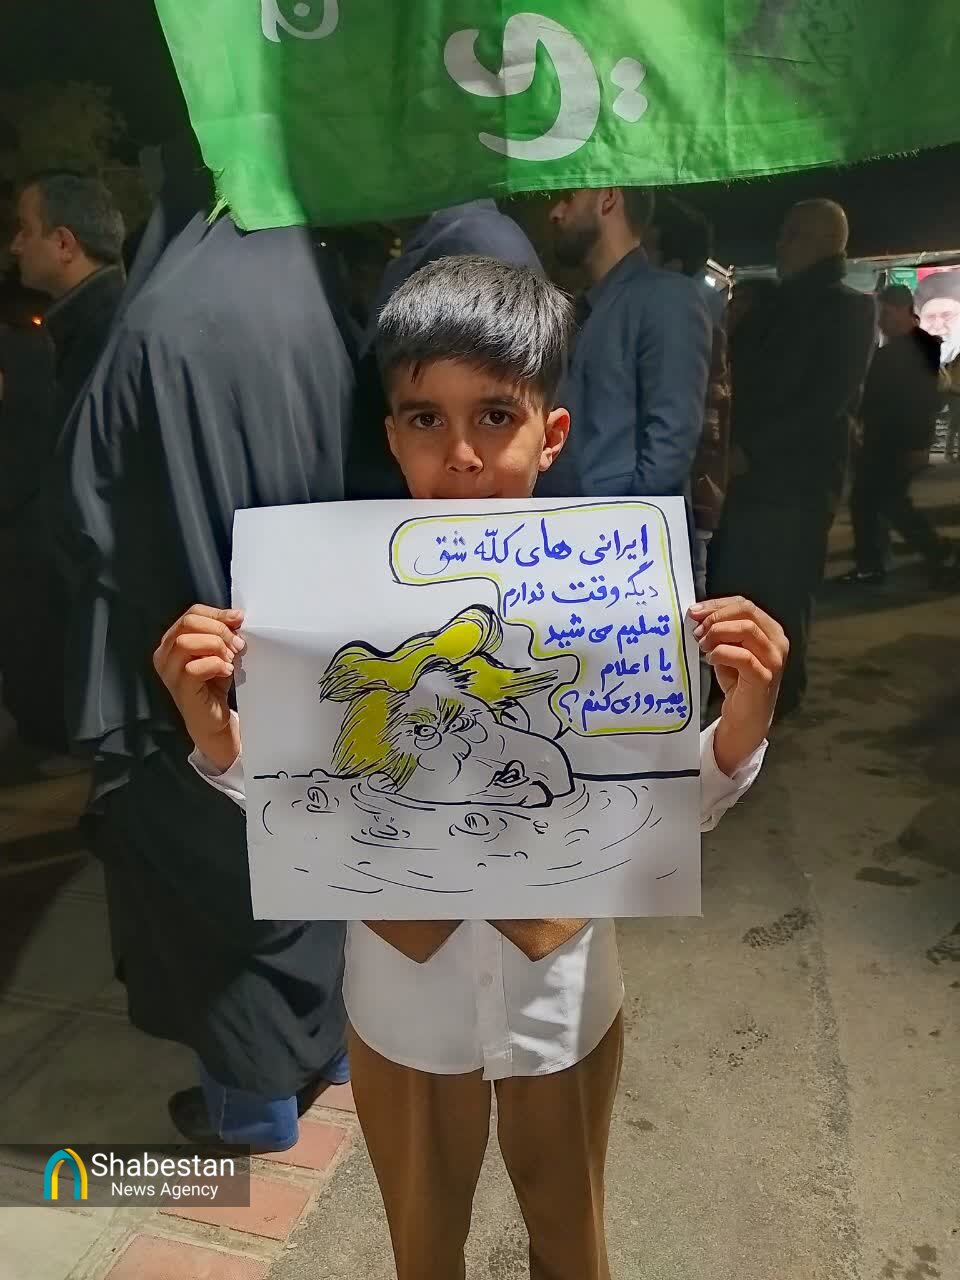 ایرانی های کلّه شق
دیگه وقت ندارم
تسلیم می شید
یا اعلام
پیروزی کنم؟
Shabestan
News Agency